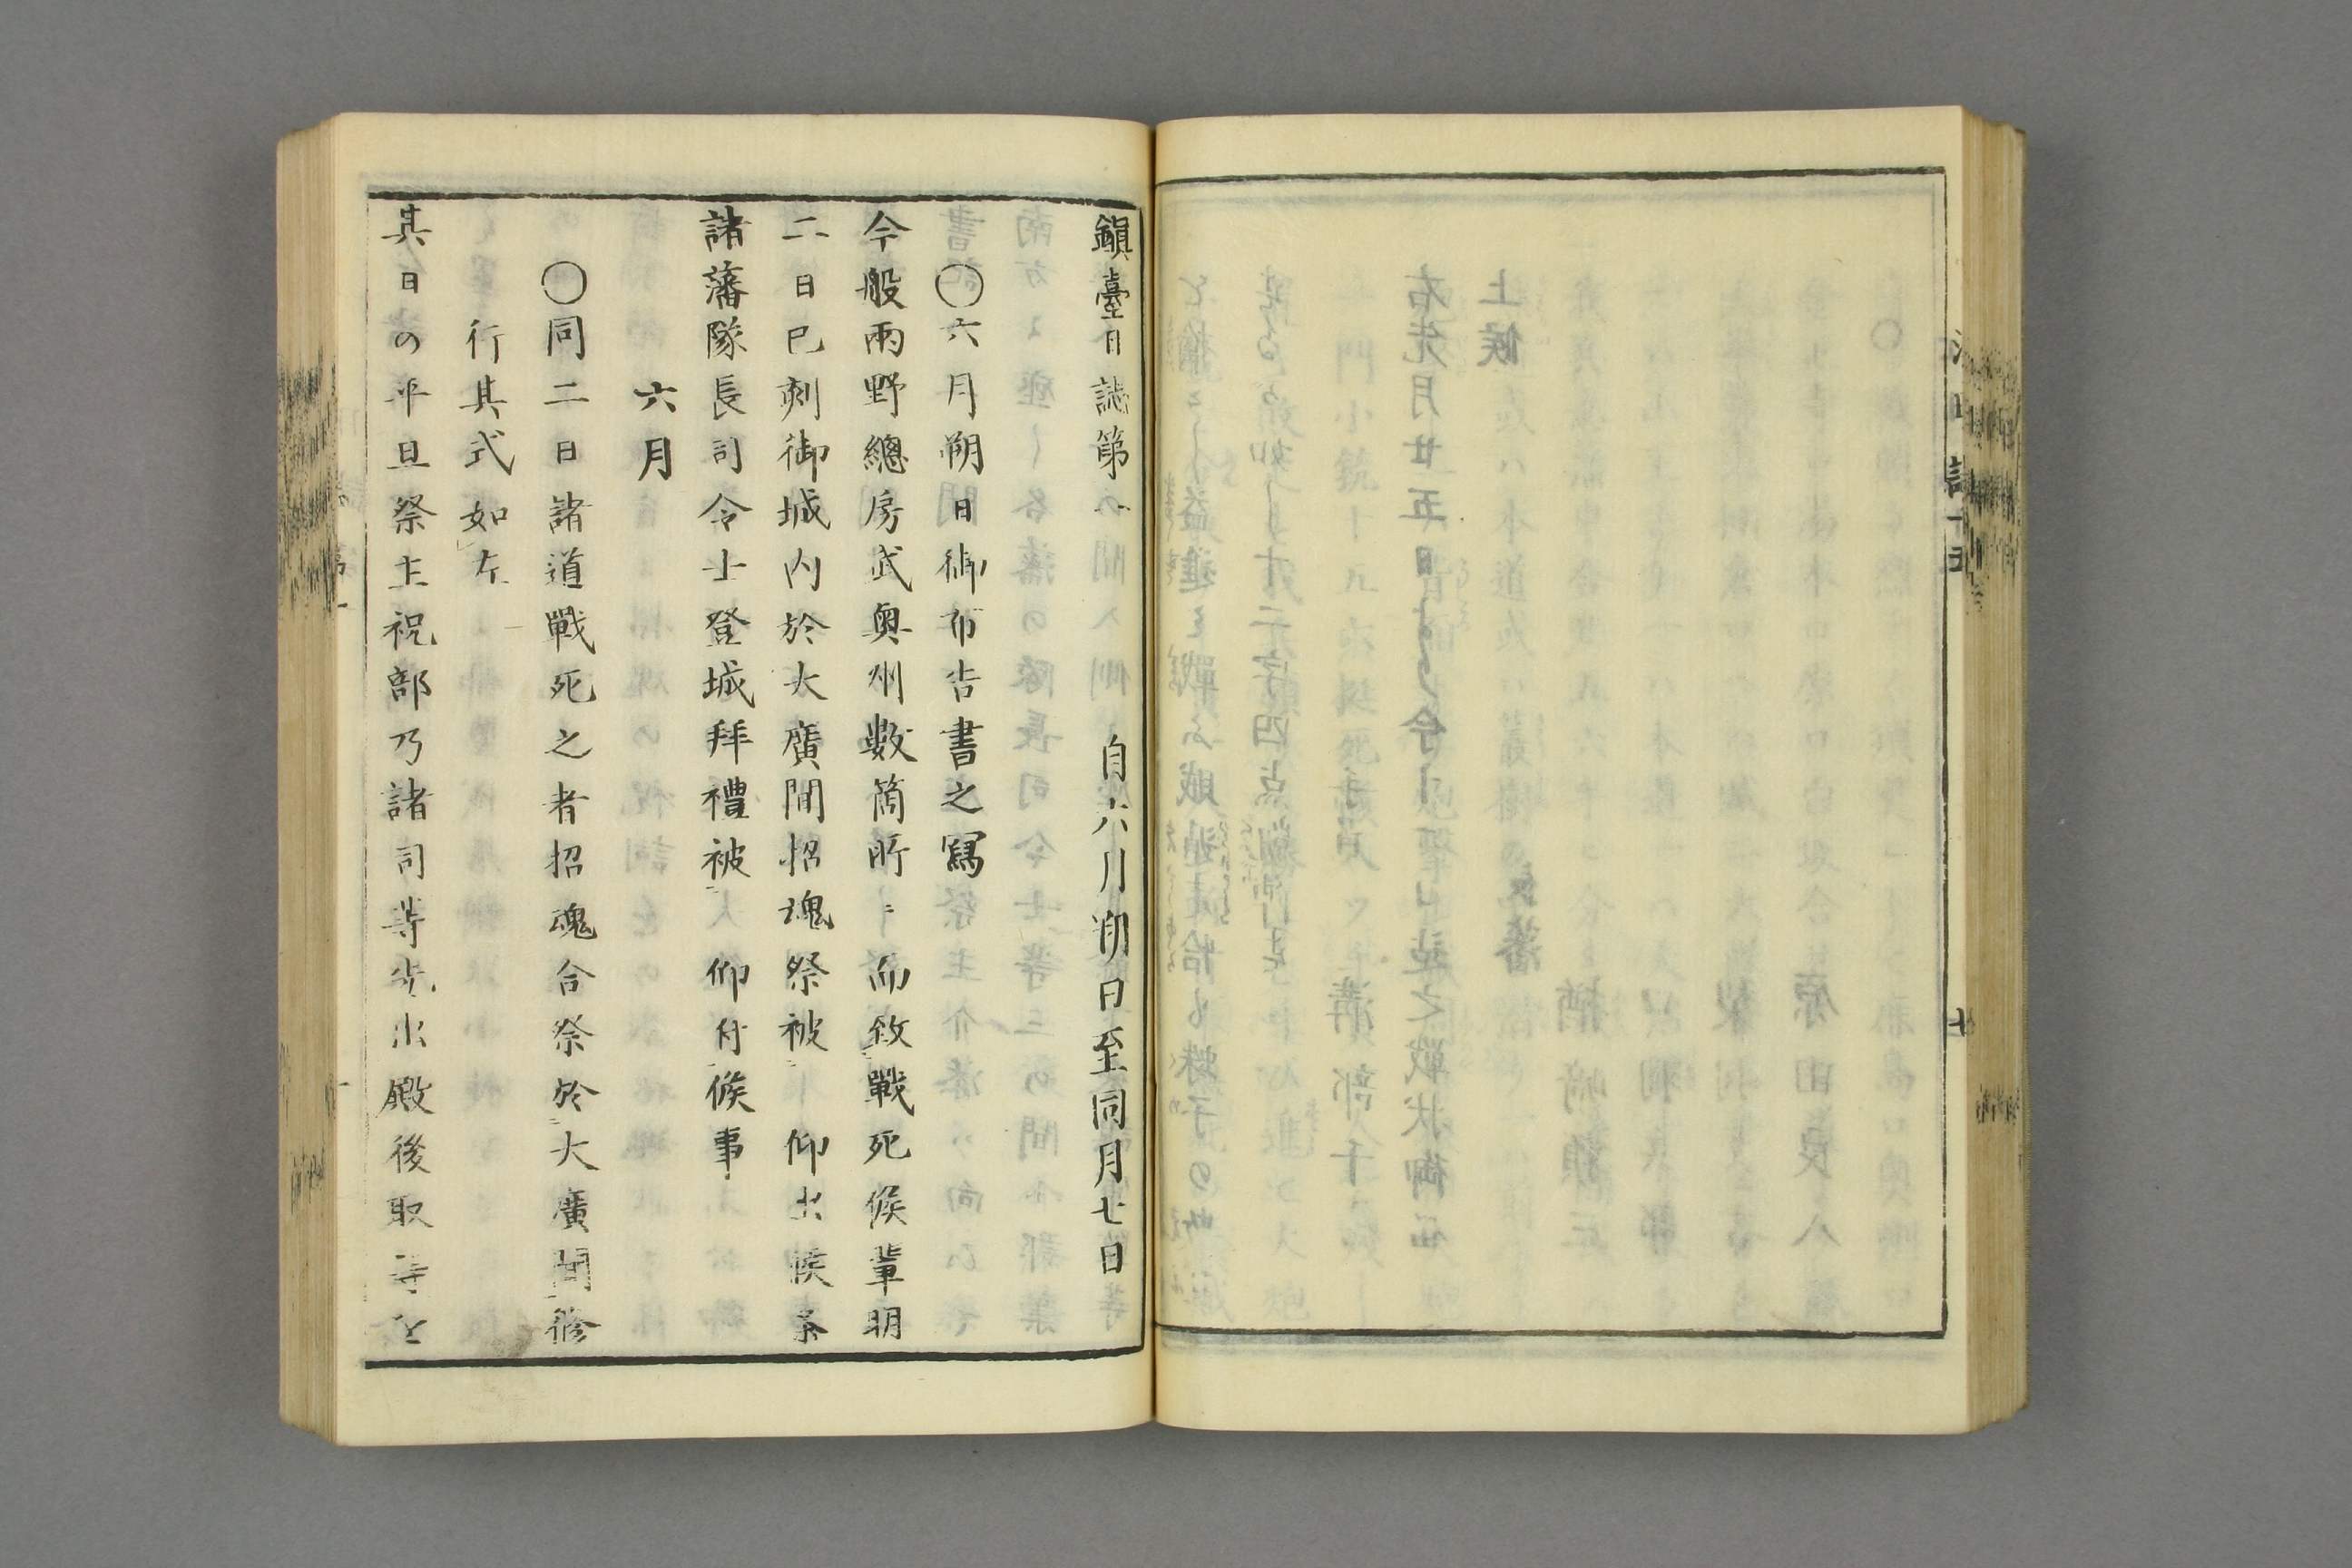 鎭臺日誌第一　自六月朔日至同月七日
〇六月朔日御布告書之寫
今般兩野總房武奥州数箇所ニ而致戰死候輩明
二日巳刻御城内於大廣間招魂祭被　仰出候条
諸藩隊長司令士登城拜禮被　仰付候事
六月
〇同二日諸道戰死之者招魂合祭於大廣間修
行其式如左
其日の平旦祭主祝部乃諸司等先出殿後取等を